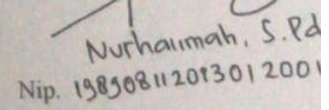 Nurhalimah, S.Pd
Nip. 198908112013012001